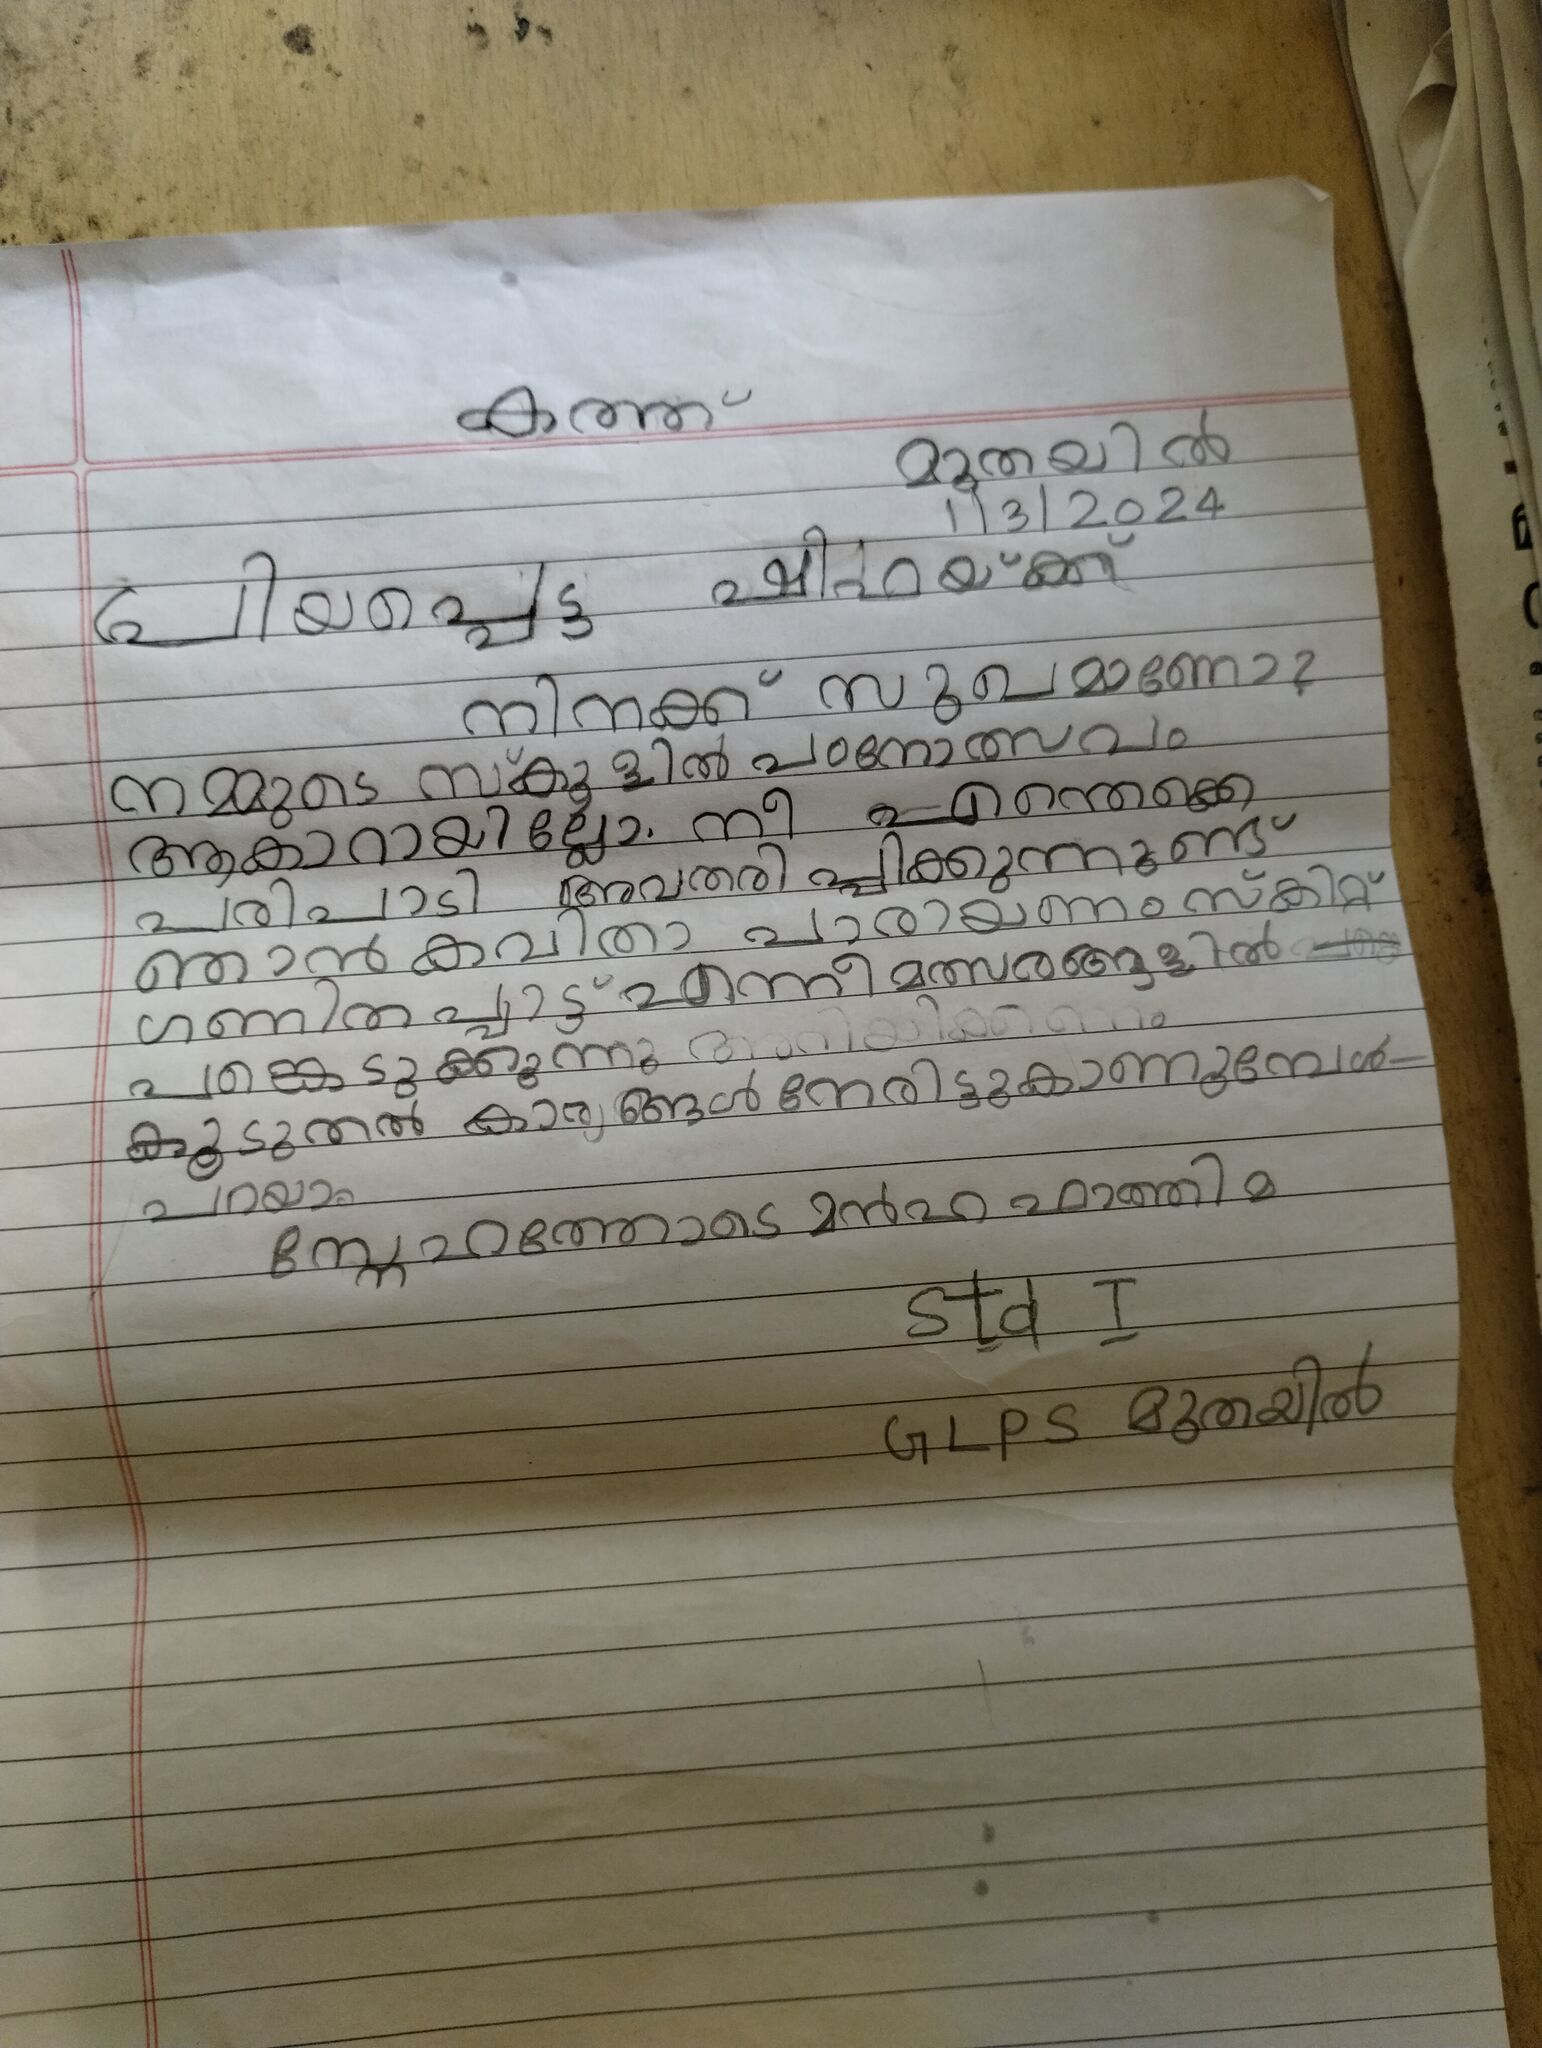 കത്ത്
മുതയിൽ
1/3/2024
പ്രിയപ്പെട്ട ഷിഫ്നയ്ക്ക്
നിനക്ക് സുഖമാണോ?
നമ്മുടെ സ്കൂളിൽ പഠനോത്സവം
ആകാറായില്ലോ. നീ എന്തെക്കെ
പരിപാടി അവതരിപ്പിക്കുന്നുണ്ട്
ഞാൻ കവിതാ പാരായണം സ്കിറ്റ്
ഗണിതപ്പാട്ട് എന്നീ മത്സരങ്ങളിൽ
പങ്കെടുക്കുന്നു
കൂടുതൽ കാര്യങ്ങൾ നേരിട്ടുകാണുമ്പോൾ
പറയാം
സ്നേഹത്തോടെ മൻഹ ഫാത്തിമ
Std I
GLPS മുതയിൽ